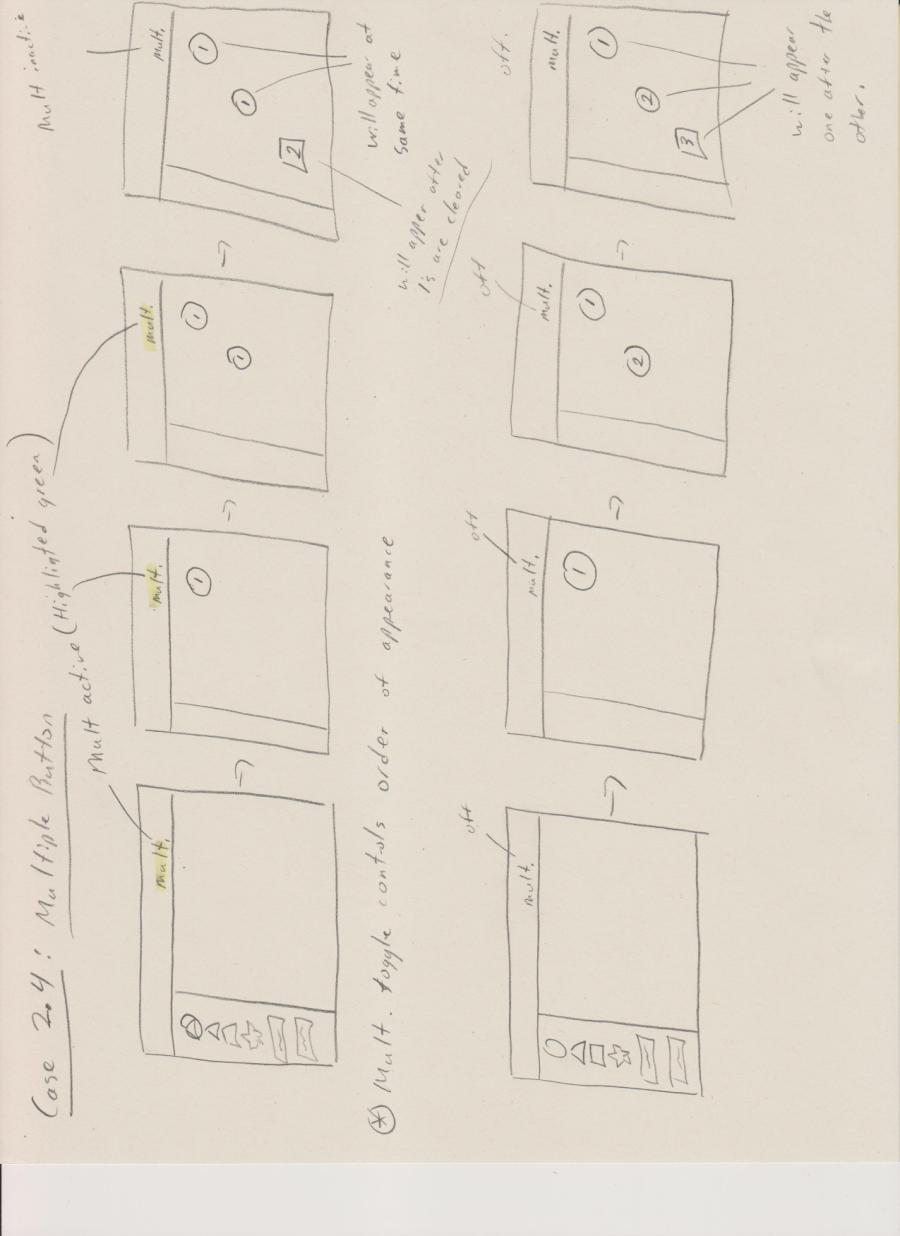 Case 2.4: Multiple Button
Mult active (Highlighted green)
Mult inactive
mult.
mult.
1
mult.
1
1
mult.
1
1
2
will appear at
same time
will apper after
1's are cleared
* Mult. toggle controls order of appearance
off
mult.
off
mult.
1
off
mult.
1
2
off.
mult.
1
2
3
will appear
one after the
other.